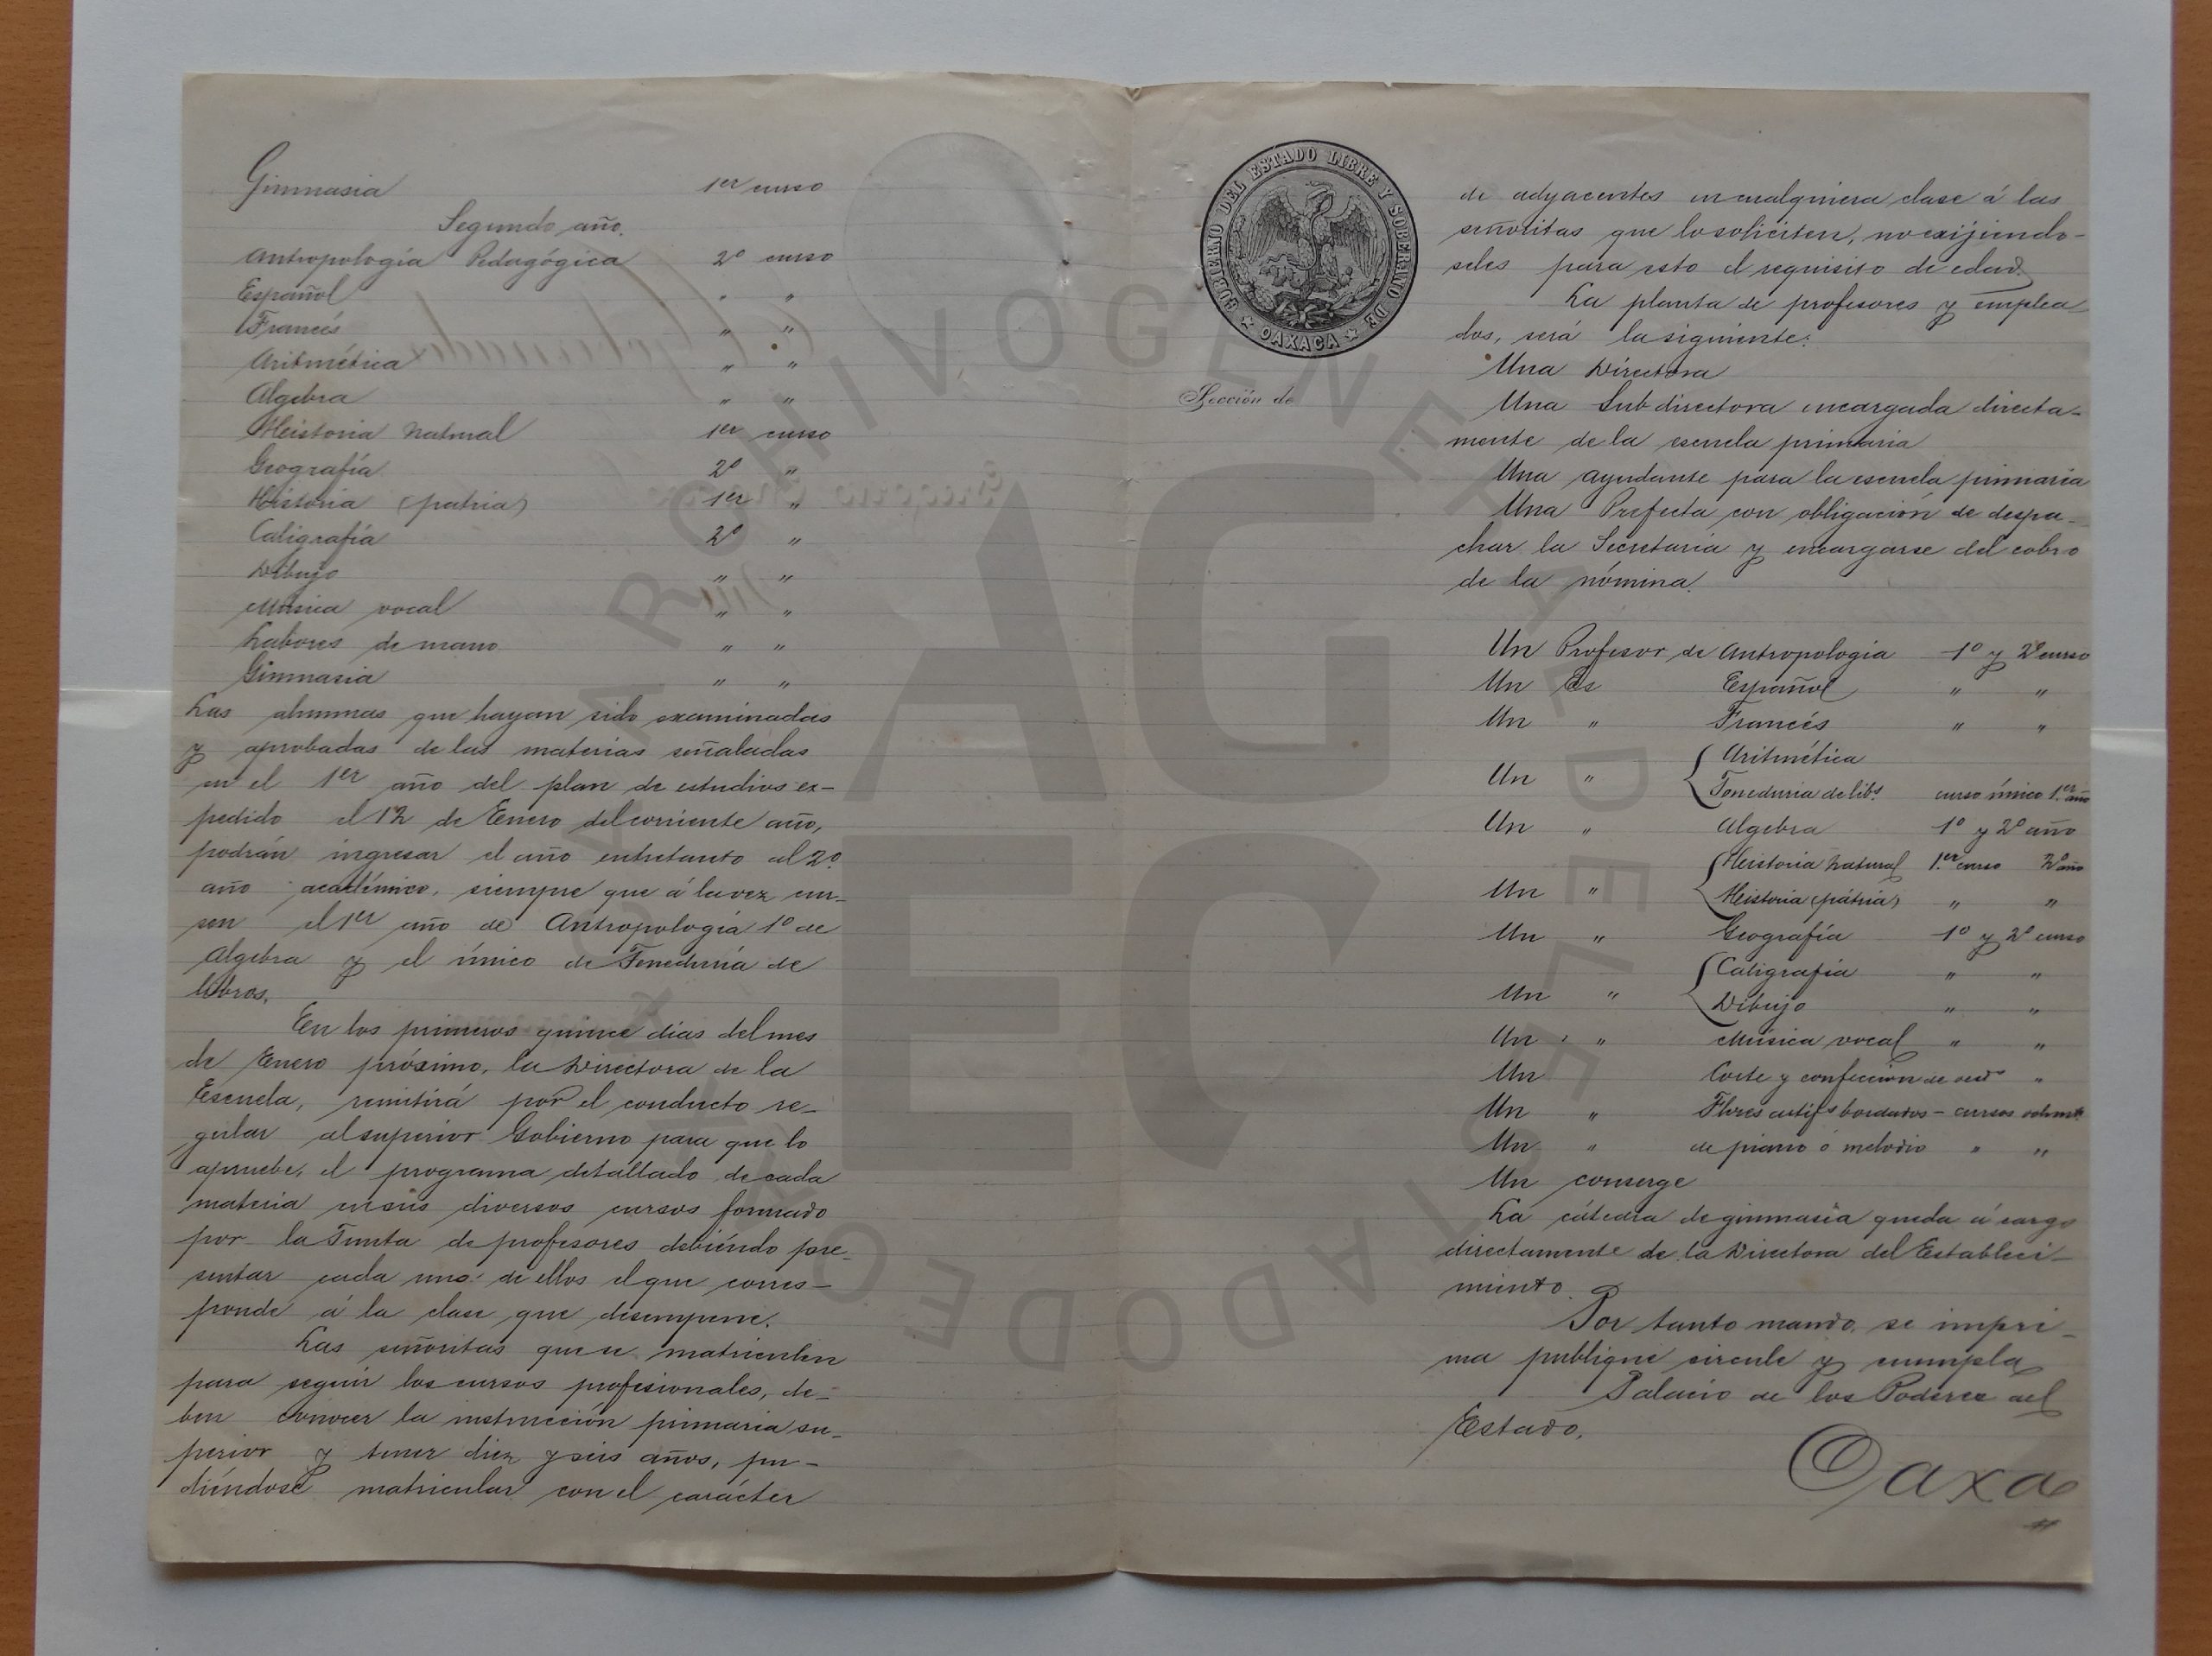 Gimnasia 1er curso
Segundo año.
Antropología Pedagógica 2º curso
Español " "
Francés " "
Aritmética " "
Algebra " "
Historia Natural 1er curso
Geografía 2º "
Historia (patria) 1er "
Caligrafía 2º "
Dibujo " "
Música vocal " "
Labores de mano " "
Gimnasia " "
Las alumnas que hayan sido examinadas
y aprobadas de las materias señaladas
en el 1er año del plan de estudios ex-
pedido el 12 de Enero del corriente año,
podrán ingresar el año entretanto al 2º
año académico, siempre que á la vez cur-
sen el 1er año de Antropología 1º de
Algebra y el único de Teneduría de
libros.
En los primeros quince dias del mes
de Enero próximo, la Directora de la
Escuela, remitirá por el conducto re-
gular al superior Gobierno para que lo
apruebe, el programa detallado de cada
materia en sus diversos cursos formado
por la Junta de profesores debiendo pre-
sentar cada uno de ellos el que corres-
ponde á la clase que desempeñe.
Las señoritas que se matriculen
para seguir los cursos profesionales, de-
ben conocer la instrucción primaria su-
perior y tener diez y seis años, pu-
diéndose matricular con el carácter
GOBIERNO DEL ESTADO LIBRE Y SOBERANO DE
★ OAXACA ★
Sección de
de adyacentes en cualquiera clase á las
señoritas que lo soliciten, no exijiendo-
seles para esto el requisito de edad.
La planta de profesores y emplea
dos, será la siguiente:
Una Directora
Una Subdirectora encargada directa-
mente de la escuela primaria
Una ayudante para la escuela primaria
Una Prefecta con obligación de despa-
char la Secretaría y encargarse del cobro
de la nómina.
Un Profesor de Antropología 1º y 2º curso
Un Español " "
Un " Francés " "
Aritmética
Un " Teneduria de libs. curso único 1.er año
Un " Algebra 1º y 2º año
Historia Natural 1.er curso 2º año
Un " Historia (pátria) " "
Un " Geografía 1º y 2º curso
Caligrafía " "
Un " Dibujo " "
Un " Música vocal " "
Un Corte y confección de "
Un " Flores artifs bordados - cursos
Un " de piano ó melodio " "
Un conserge
La cátedra de gimnasia queda á cargo
directamente de la Directora del Estableci-
miento.
Por tanto mando, se impri-
ma publique circule y cumpla
Palacio de los Poderes del
Estado.
Oaxa
ARCHIVO GENERAL DEL ESTADO DE
AGEC